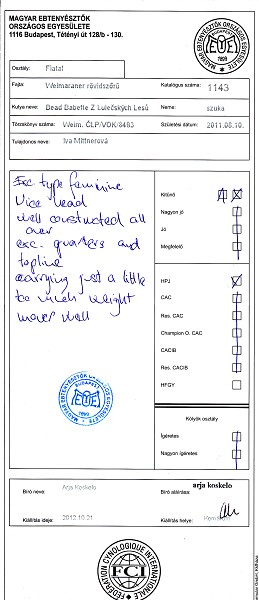 MAGYAR EBTENYÉSZTŐK
ORSZÁGOS EGYESÜLETE
1116 Budapest, Tétényi út 128/b - 130.
MAGYAR EBTENYÉSZTŐK ORSZÁGOS EGYESÜLETE
BUDAPEST
1899
Osztály: Fiatal
Fajta: Weimaraner rövidszőrű
Katalógus száma: 1143
Kutya neve: Bead Babette Z Lulečských Lesů
Neme: szuka
Törzskönyv száma: Weim. ČLP/VDK/8483
Születési dátum: 2011.08.10.
Tulajdonos neve: Iva Mittnerová
Exc type feminine
Nice head
well constructed all
over
exc. quarters and
topline
carrying just a little
to much weight
moves well
Kitűnő
Nagyon jó
Jó
Megfelelő
HPJ
CAC
Res. CAC
Champion O. CAC
CACIB
Res. CACIB
HFGY
Kölyök osztály
Ígéretes
Nagyon ígéretes
MAGYAR EBTENYÉSZTŐK ORSZÁGOS EGYESÜLETE
BUDAPEST
1899
Bíró neve: Arja Koskelo
Bíró aláírása: arja koskelo
Kiállítás ideje: 2012.10.21.
Kiállítás helye: Komárom
FÉDÉRATION CYNOLOGIQUE INTERNATIONALE
FCI